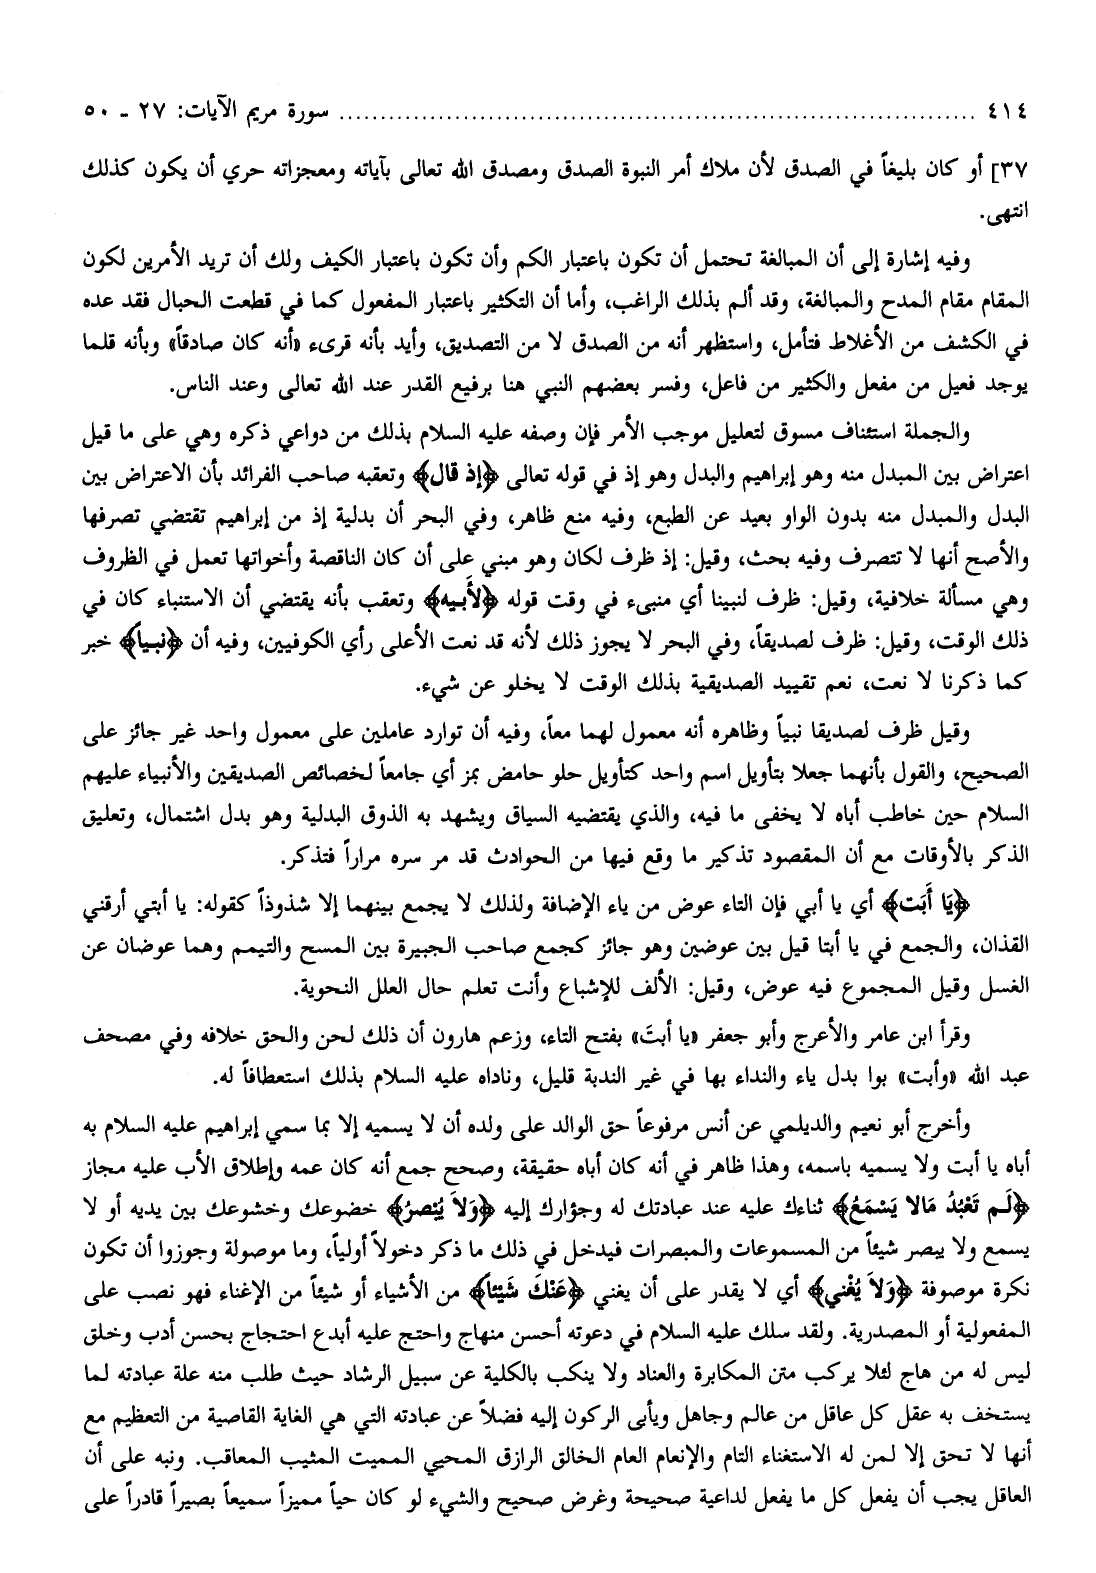 ٤١٤ ........................................ سورة مريم الآيات: ٢٧ - ٥٠
٣٧] أو كان بليغاً في الصدق لأن ملاك أمر النبوة الصدق ومصدق الله تعالى بآياته ومعجزاته حري أن يكون كذلك
انتهى.
وفيه إشارة إلى أن المبالغة تحتمل أن تكون باعتبار الكم وأن تكون باعتبار الكيف ولك أن تريد الأمرين لكون
المقام مقام المدح والمبالغة، وقد ألم بذلك الراغب، وأما أن التكثير باعتبار المفعول كما في قطعت الحبال فقد عده
في الكشف من الأغلاط فتأمل، واستظهر أنه من الصدق لا من التصديق، وأيد بأنه قرىء «أنه كان صادقاً» وبأنه قلما
يوجد فعيل من مفعل والكثير من فاعل، وفسر بعضهم النبي هنا برفيع القدر عند الله تعالى وعند الناس.
والجملة استئناف مسوق لتعليل موجب الأمر فإن وصفه عليه السلام بذلك من دواعي ذكره وهي على ما قيل
اعتراض بين المبدل منه وهو إبراهيم والبدل وهو إذ في قوله تعالى ﴿إذ قال﴾ وتعقبه صاحب الفرائد بأن الاعتراض بين
البدل والمبدل منه بدون الواو بعيد عن الطبع، وفيه منع ظاهر، وفي البحر أن بدلية إذ من إبراهيم تقتضي تصرفها
والأصح أنها لا تتصرف وفيه بحث، وقيل: إذ ظرف لكان وهو مبني على أن كان الناقصة وأخواتها تعمل في الظروف
وهي مسألة خلافية، وقيل: ظرف لنبينا أي منبىء في وقت قوله ﴿لأَبيه﴾ وتعقب بأنه يقتضي أن الاستنباء كان في
ذلك الوقت، وقيل: ظرف لصديقاً، وفي البحر لا يجوز ذلك لأنه قد نعت الأعلى رأي الكوفيين، وفيه أن ﴿نبياً﴾ خبر
كما ذكرنا لا نعت، نعم تقييد الصديقية بذلك الوقت لا يخلو عن شيء.
وقيل ظرف لصديقا نبياً وظاهره أنه معمول لهما معاً، وفيه أن توارد عاملين على معمول واحد غير جائز على
الصحيح، والقول بأنهما جعلا بتأويل اسم واحد كتأويل حلو حامض بمز أي جامعاً لخصائص الصديقين والأنبياء عليهم
السلام حين خاطب أباه لا يخفى ما فيه، والذي يقتضيه السياق ويشهد به الذوق البدلية وهو بدل اشتمال، وتعليق
الذكر بالأوقات مع أن المقصود تذكير ما وقع فيها من الحوادث قد مر سره مراراً فتذكر.
﴿يَا أَبَت﴾ أي يا أبي فإن التاء عوض من ياء الإضافة ولذلك لا يجمع بينهما إلا شذوذاً كقوله: يا أبتي أرقني
القذان، والجمع في يا أبتا قيل بين عوضين وهو جائز كجمع صاحب الجبيرة بين المسح والتيمم وهما عوضان عن
الغسل وقيل المجموع فيه عوض، وقيل: الألف للإشباع وأنت تعلم حال العلل النحوية.
وقرأ ابن عامر والأعرج وأبو جعفر «يا أبتَ» بفتح التاء، وزعم هارون أن ذلك لحن والحق خلافه وفي مصحف
عبد الله «وأبت» بوا بدل ياء والنداء بها في غير الندبة قليل، وناداه عليه السلام بذلك استعطافاً له.
وأخرج أبو نعيم والديلمي عن أنس مرفوعاً حق الوالد على ولده أن لا يسميه إلا بما سمي إبراهيم عليه السلام به
أباه يا أبت ولا يسميه باسمه، وهذا ظاهر في أنه كان أباه حقيقة، وصحح جمع أنه كان عمه وإطلاق الأب عليه مجاز
﴿لَم تَعْبُدُ مَالا يَسْمَعُ﴾ ثناءك عليه عند عبادتك له وجؤارك إليه ﴿وَلاَ يُبْصرُ﴾ خضوعك وخشوعك بين يديه أو لا
يسمع ولا يبصر شيئاً من المسموعات والمبصرات فيدخل في ذلك ما ذكر دخولاً أولياً، وما موصولة وجوزوا أن تكون
نكرة موصوفة ﴿وَلاَ يُغْني﴾ أي لا يقدر على أن يغني ﴿عَنْكَ شَيْئاً﴾ من الأشياء أو شيئاً من الإغناء فهو نصب على
المفعولية أو المصدرية. ولقد سلك عليه السلام في دعوته أحسن منهاج واحتج عليه أبدع احتجاج بحسن أدب وخلق
ليس له من هاج لئلا يركب متن المكابرة والعناد ولا ينكب بالكلية عن سبيل الرشاد حيث طلب منه علة عبادته لما
يستخف به عقل كل عاقل من عالم وجاهل ويأبى الركون إليه فضلاً عن عبادته التي هي الغاية القاصية من التعظيم مع
أنها لا تحق إلا لمن له الاستغناء التام والإنعام العام الخالق الرازق المحيي المميت المثيب المعاقب. ونبه على أن
العاقل يجب أن يفعل كل ما يفعل لداعية صحيحة وغرض صحيح والشيء لو كان حياً مميزاً سميعاً بصيراً قادراً على